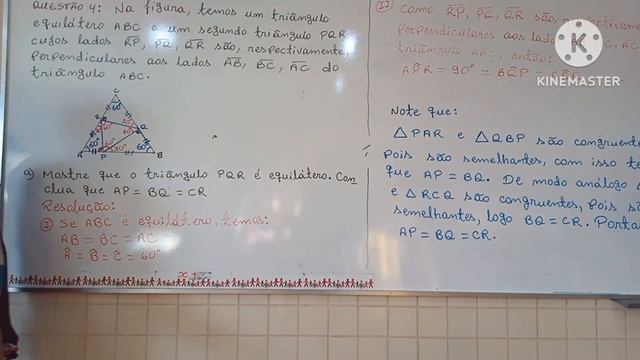 QUESTÃO 4: Na figura, temos um triângulo
equilátero ABC e um segundo triângulo PQR
cujos lados RP, PQ, QR são, respectivamente,
perpendiculares aos lados AB, BC, AC do
triângulo ABC.
C
60°
R
Q
A
P
B
60°
30°
60°
a) Mostre que o triângulo PQR é equilátero. Con
clua que AP = BQ = CR
Resolução:
I) Se ABC é equilátero, temos:
AB = BC = AC
Â = B̂ = Ĉ = 60°
II) Como RP, PQ, QR são, respectivame
perpendiculares aos la
triângulo ABC, então:
AP̂R = 90° = BQ̂P =
KINEMASTER
Note que:
△PAR e △QBP são congruente
Pois são semelhantes, com isso te
que AP = BQ. De modo análogo
e △RCQ são congruentes, pois s
semelhantes, logo BQ = CR. Porta
AP = BQ = CR.